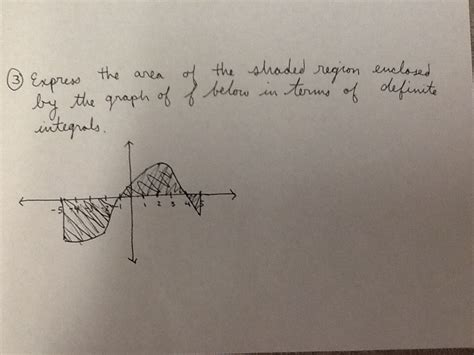 ③ Express the area of the shaded region enclosed
by the graph of f below in terms of definite
integrals.
-5 -1 1 2 3 4 5